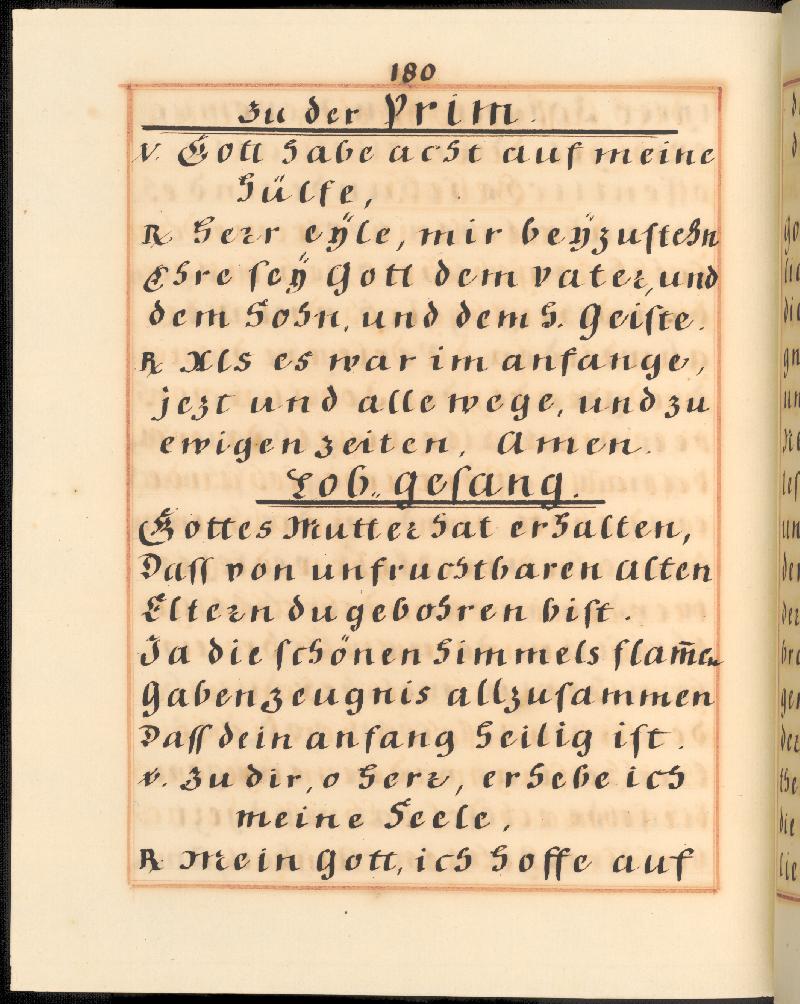 180
Zu der Prim.
V. Gott habe acht auf meine
Hülfe,
R Herr eÿle, mir beÿzustehn
Ehre seÿ Gott dem Vater, und
dem Sohn, und dem H. Geiste.
R Als es war im anfange,
jezt und alle wege, und zu
ewigen zeiten, Amen.
Lob„gesang.
Gottes Mutter hat erhalten,
Dass von unfruchtbaren alten
Eltern du gebohren bist.
Ja die schönen himmels flam̄en
Gaben zeugnis allzusammen
Dass dein anfang heilig ist.
V. Zu dir, o Herr, erhebe ich
meine Seele,
R Mein Gott, ich hoffe auf